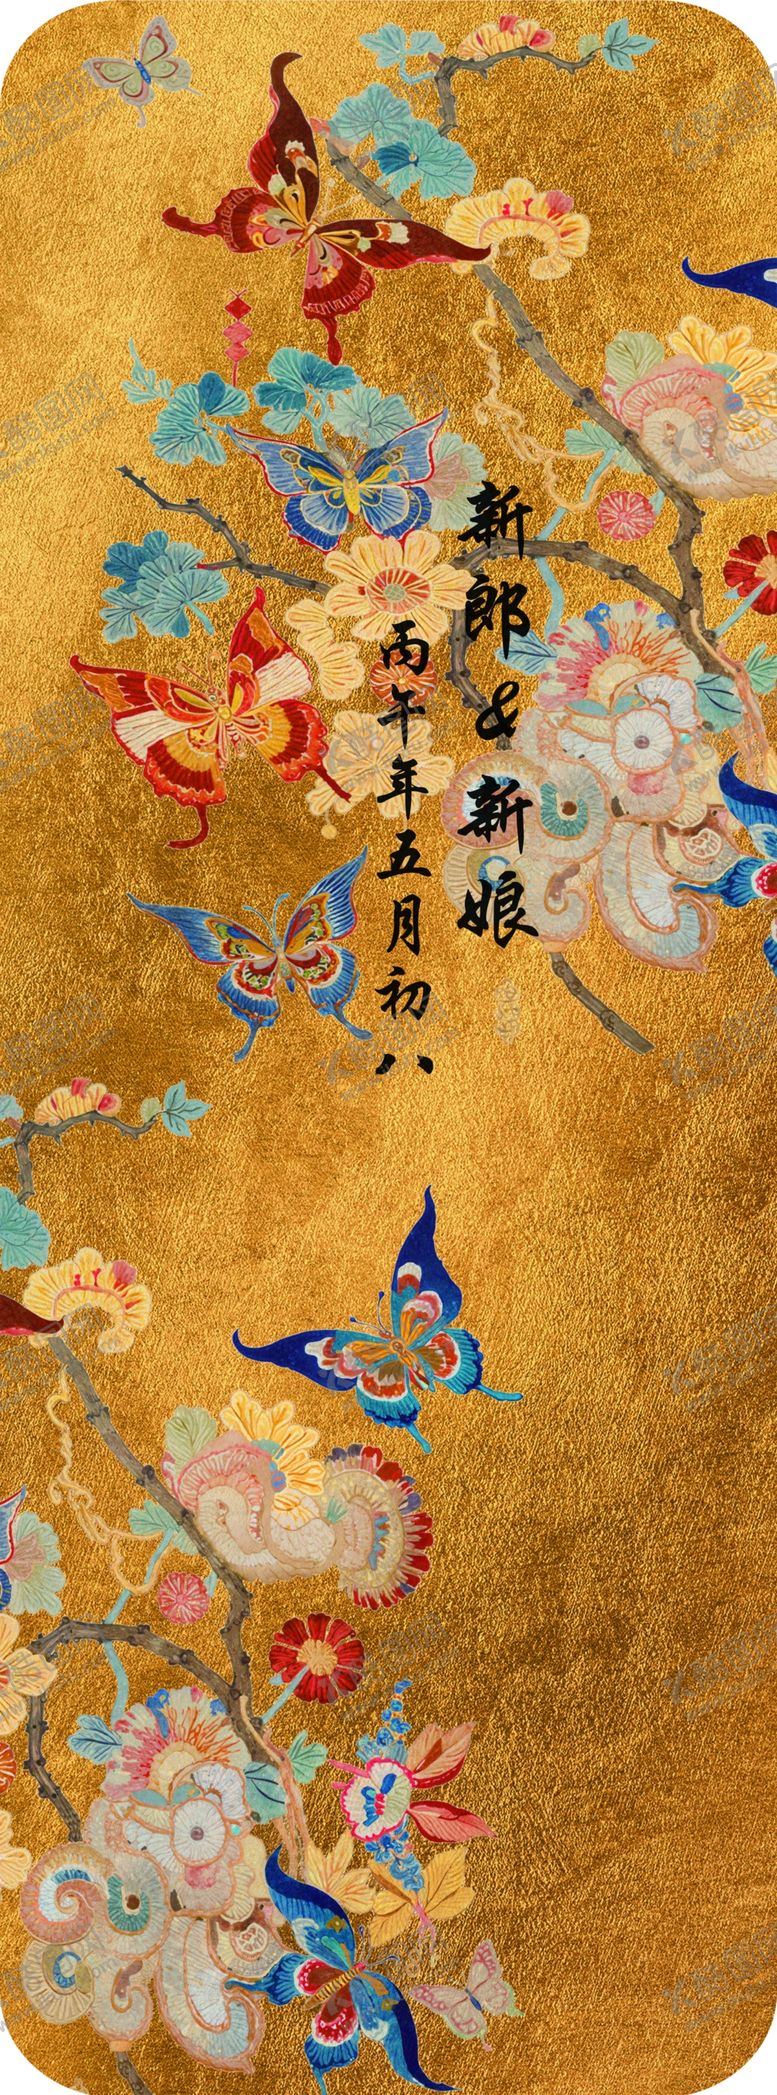 新郎&新娘
丙午年五月初八